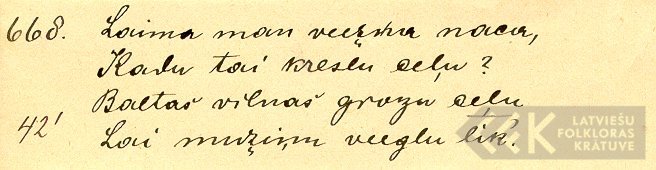 668. Laima man veeşņa naca,
Kadu tai kreslu ceļu?
Baltaš vilnaš grozu ceļu
42' Lai mužiņu veeglu lik.
LATVIEŠU
FOLKLORAS
KRĀTUVE